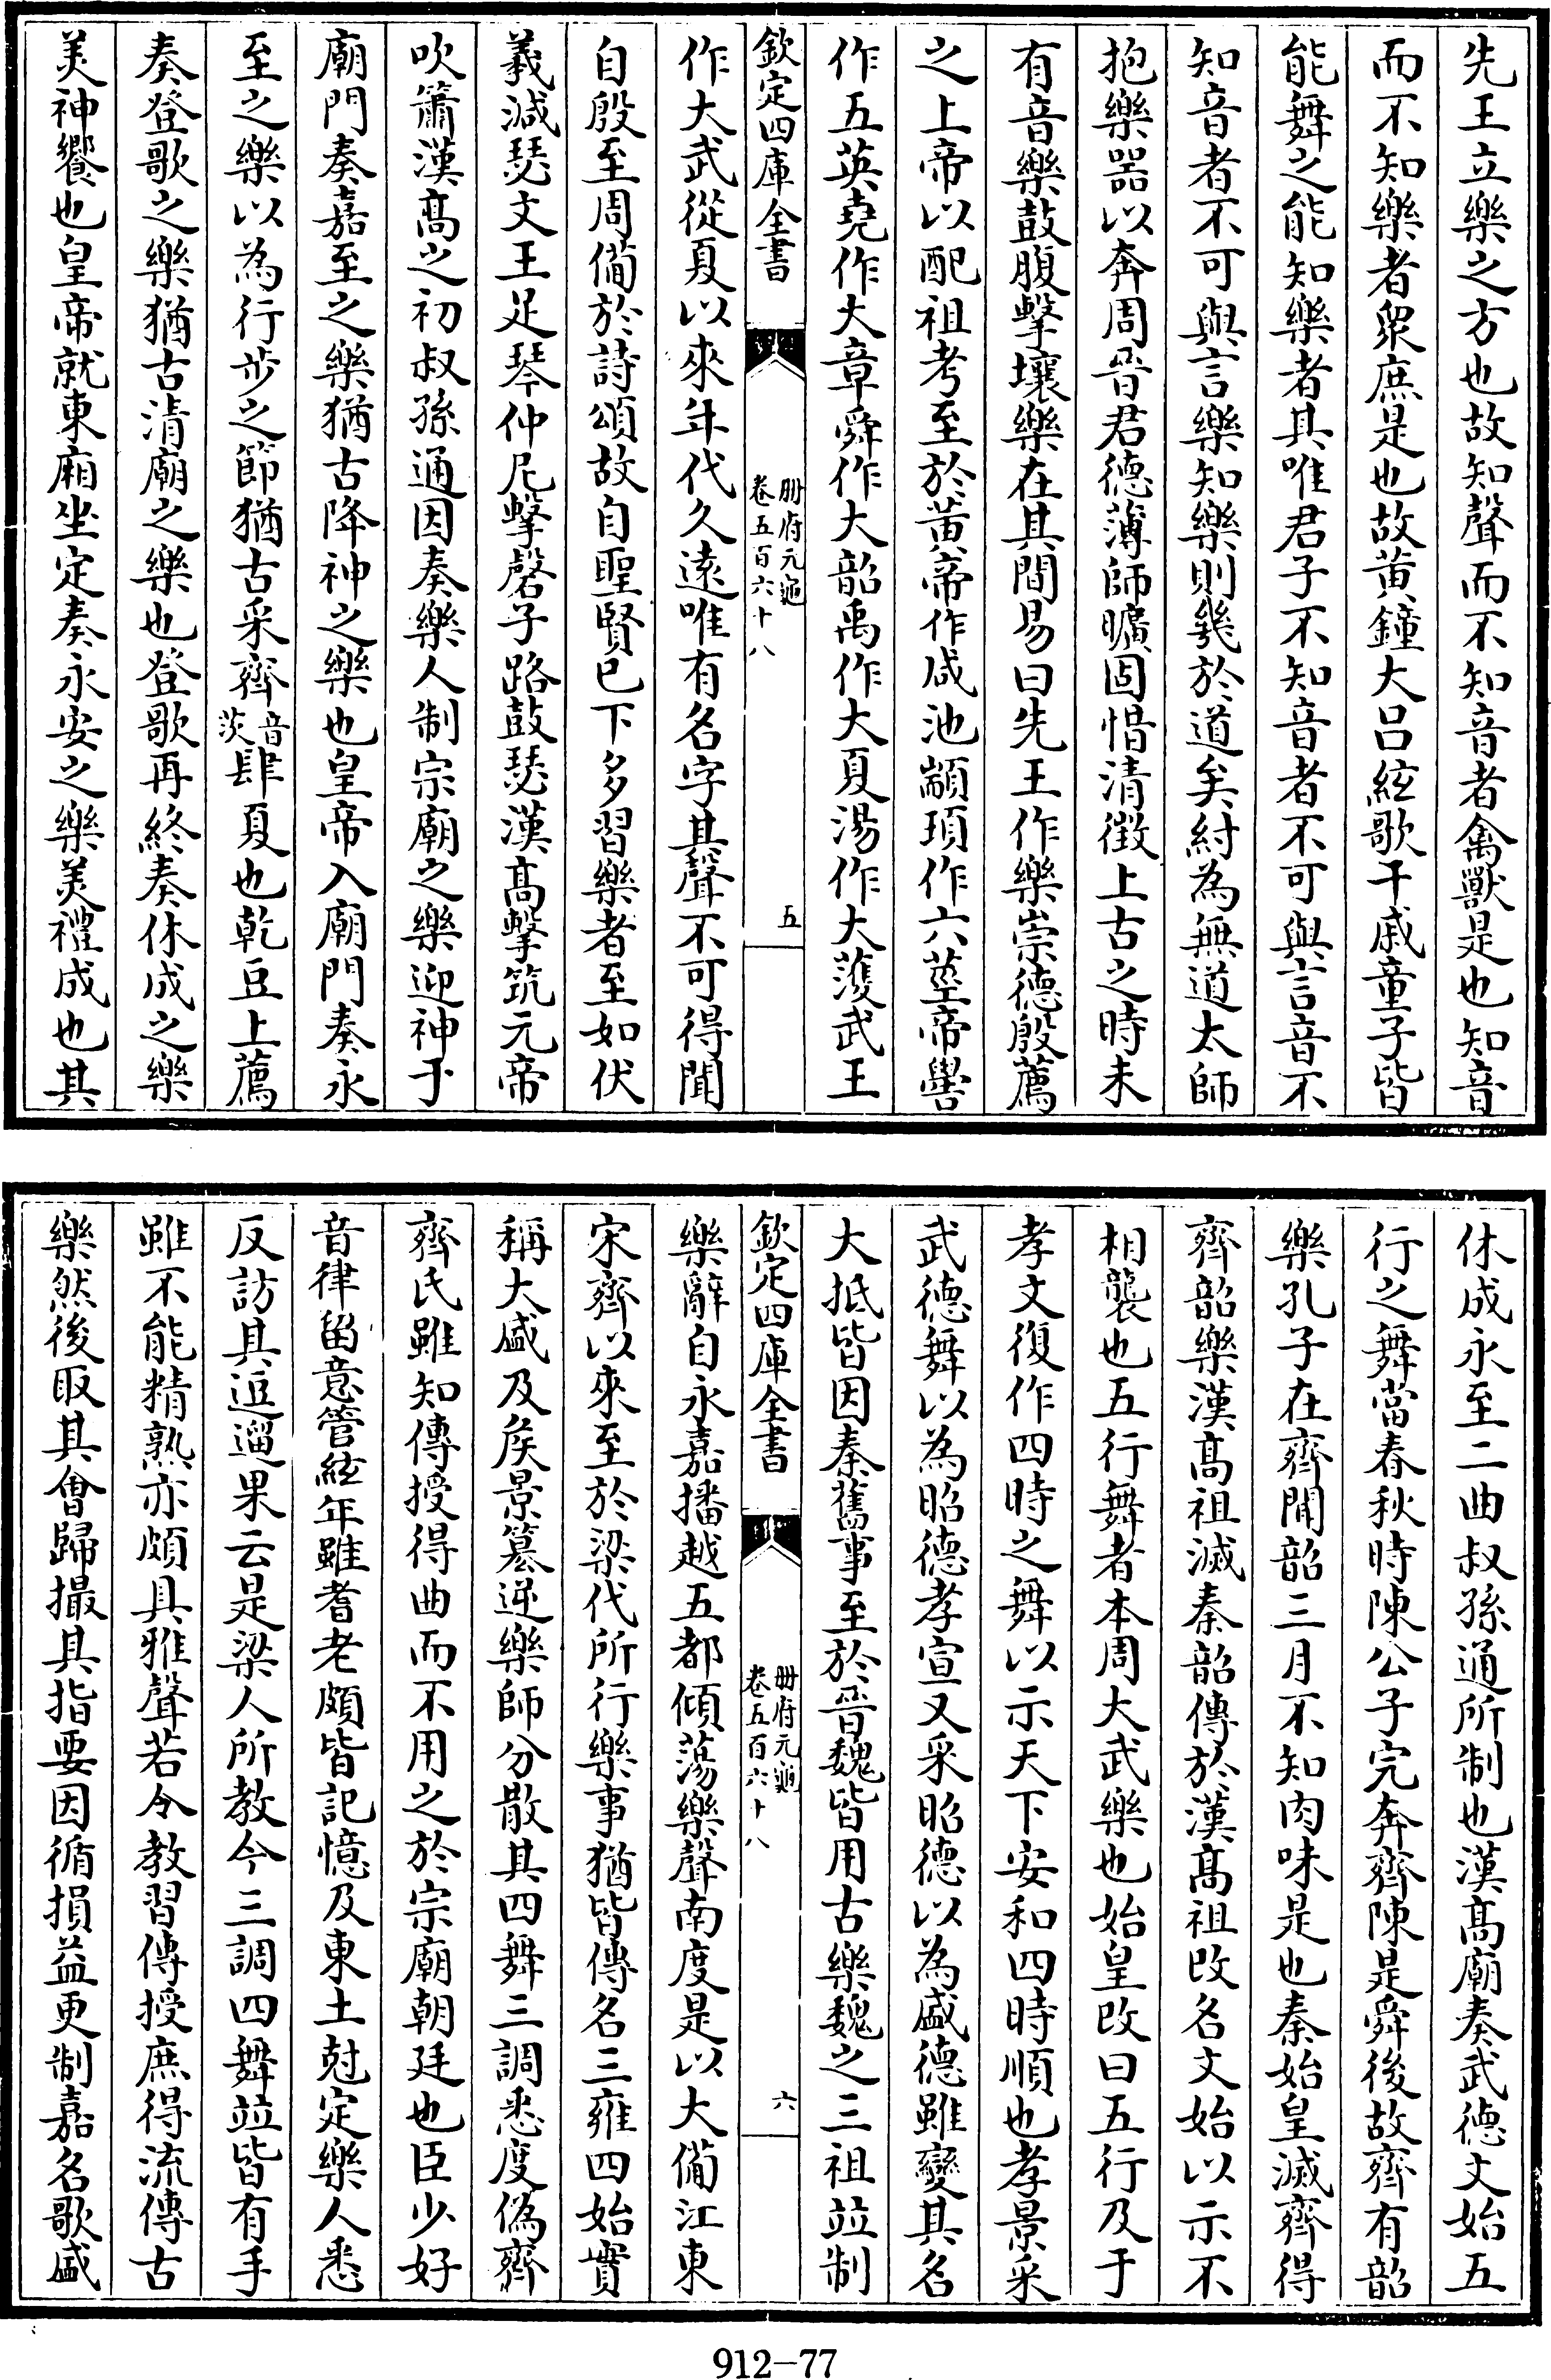 先王立樂之方也故知聲而不知音者禽獸是也知音
而不知樂者衆庶是也故黄鐘大吕絃歌干戚童子皆
能舞之能知樂者其唯君子不知音者不可與言音不
知音者不可與言樂知樂則幾於道矣紂為無道太師
抱樂器以奔周晉君德薄師曠固惜清徵上古之時未
有音樂鼓腹擊壤樂在其間易曰先王作樂崇德殷薦
之上帝以配祖考至於黄帝作咸池顓頊作六莖帝嚳
作五英堯作大章舜作大韶禹作大夏湯作大濩武王
欽定四庫全書
冊府元龜
卷五百六十八
五
作大武從夏以來年代久遠唯有名字其聲不可得聞
自殷至周備於詩頌故自聖賢已下多習樂者至如伏
羲減瑟文王足琴仲尼擊磬子路鼓瑟漢髙擊筑元帝
吹簫漢髙之初叔孫通因奏樂人制宗廟之樂迎神于
廟門奏嘉至之樂猶古降神之樂也皇帝入廟門奏永
至之樂以為行步之節猶古采齊音茨肆夏也乾豆上薦
奏登歌之樂猶古清廟之樂也登歌再終奏休成之樂
美神饗也皇帝就東廂坐定奏永安之樂美禮成也其
休成永至二曲叔孫通所制也漢髙廟奏武德文始五
行之舞當春秋時陳公子完奔齊陳是舜後故齊有韶
樂孔子在齊聞韶三月不知肉味是也秦始皇滅齊得
齊韶樂漢髙祖滅秦韶傳於漢髙祖改名文始以示不
相襲也五行舞者本周大武樂也始皇改曰五行及于
孝文復作四時之舞以示天下安和四時順也孝景采
武德舞以為昭德孝宣又采昭德以為盛德雖變其名
大抵皆因秦舊事至於晉魏皆用古樂魏之三祖竝制
欽定四庫全書
冊府元龜
卷五百六十八
六
樂辭自永嘉播越五都傾蕩樂聲南度是以大備江東
宋齊以來至於梁代所行樂事猶皆傳名三雍四始實
稱大盛及侯景簒逆樂師分散其四舞三調悉度偽齊
齊氏雖知傳授得曲而不用之於宗廟朝廷也臣少好
音律留意管絃年雖耆老頗皆記憶及東土尅定樂人悉
反訪其逗遛果云是梁人所教今三調四舞竝皆有手
雖不能精熟亦頗具雅聲若令教習傳授庶得流傳古
樂然後取其會歸撮其指要因循損益更制嘉名歌盛
912-77